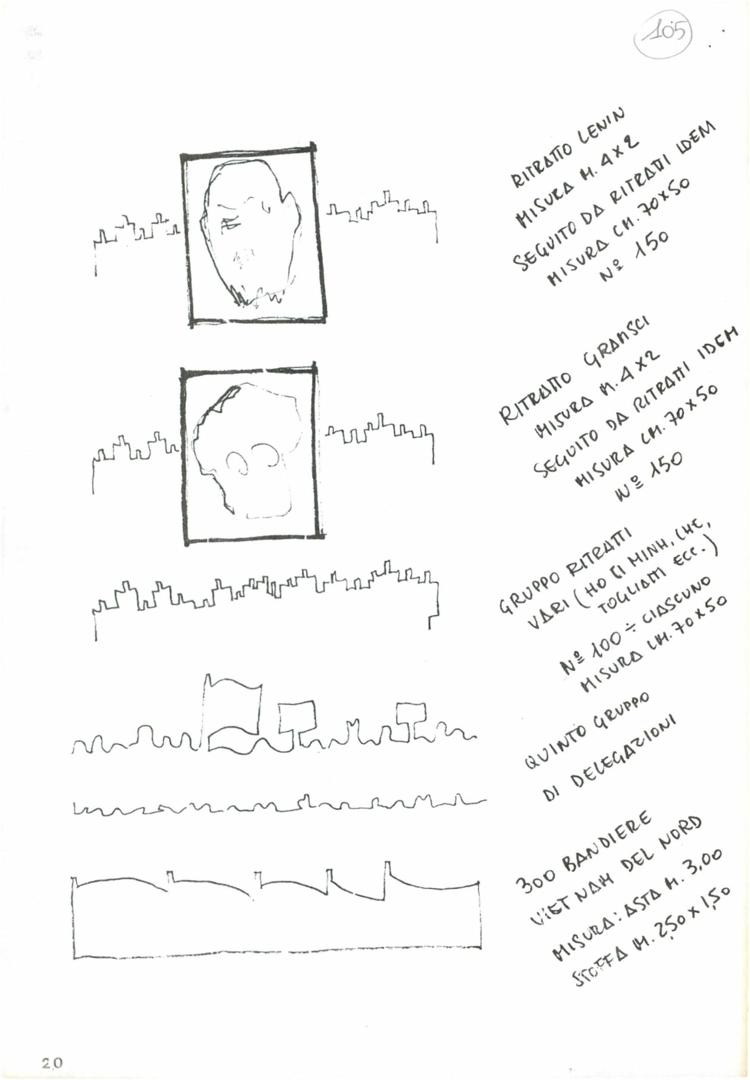 105
RITRATTO LENIN
MISURA M. 4X2
SEGUITO DA RITRATTI IDEM
MISURA CM. 70X50
Nº 150
RITRATTO GRAMSCI
MISURA M. 4X2
SEGUITO DA RITRATTI IDEM
MISURA CM. 70X50
Nº 150
GRUPPO RITRATTI
VARI (HO CI MINH, CHE,
TOGLIATTI ECC.)
Nº 100 ÷ CIASCUNO
MISURA CM. 70X50
QUINTO GRUPPO
DI DELEGAZIONI
300 BANDIERE
VIET NAM DEL NORD
MISURA: ASTA M. 3,00
STOFFA M. 2,50 X 1,50
20